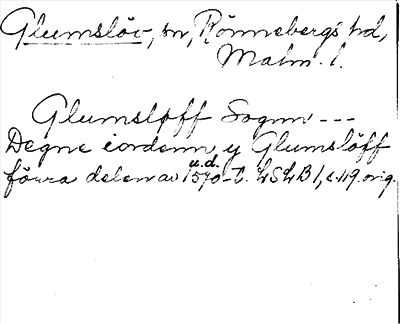 Glumslöv, sn, Rönnebergs hd,
Malm. l.
Glumsløff Sognn ---
Degne iordenn y Glumslöff
u.d.
förra delen av 1570-t. LSLB 1, c. 119. orig.